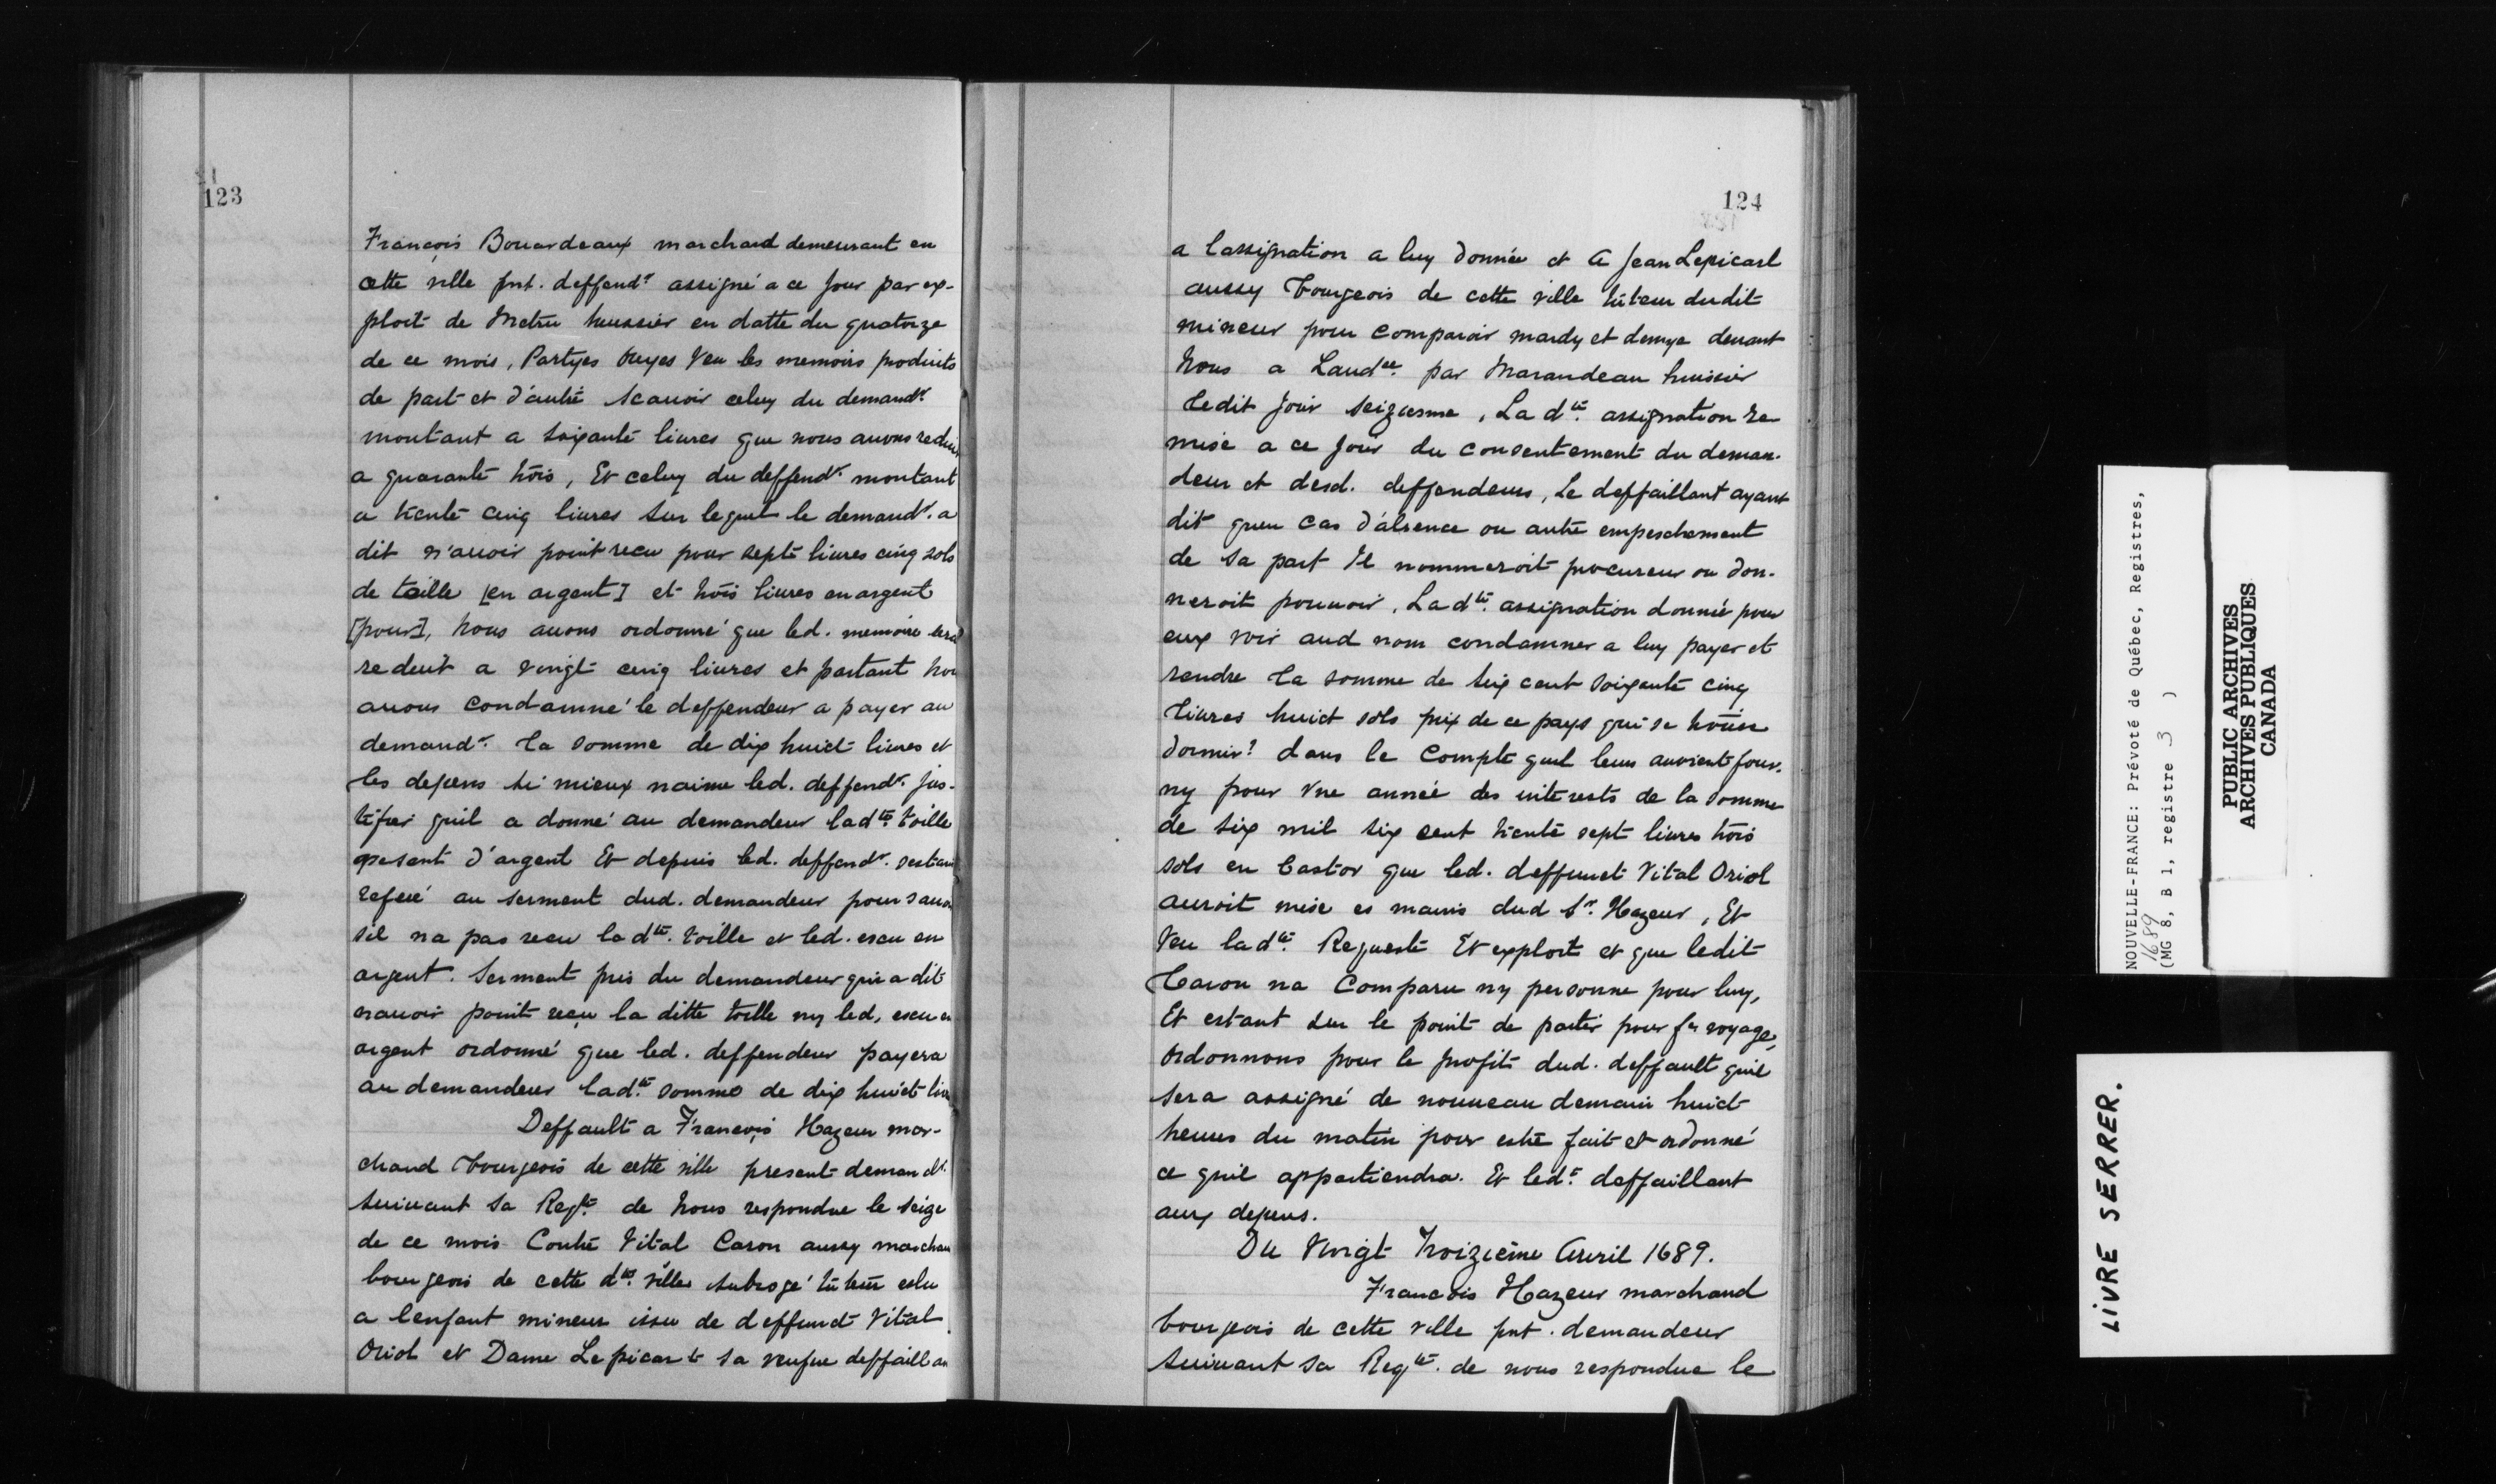 123
François Bouardeaux marchand demeurant en
cette ville pnt. deffendr assigné a ce Jour par ex-
ploit de Metru huissier en datte du quatorze
de ce mois, Partyes Ouyes Veu les memoirs produits
de part et d'autre scauoir celuy du demandr.
montant a soixante liures que nous auons reduit
a quarante trois, Et celuy du deffendr. montant
a trente cinq liures sur lequel le demandr. a
dit n'auoir point recu pour septe liures cinq sols
de toille [en argent] et trois liures en argent
[pour], Nous auons ordonné que led. memoire sera
reduit a vingt cinq liures et partant
auons condamné le deffendeur a payer au
demandr. la somme de dix huict liures et
les depens si mieux naime led. deffendr. jus-
tifier quil a donné au demandeur ladte. toille
 d'argent Et depuis led. deffendr. sestant
referé au serment dud. demandeur pour
sil na pas receu ladte. toille et led. escu en
argent. Serment pris du demandeur qui a dit
nauoir point reçu la ditte toille ny led, escu en
argent ordonné que led. deffendeur payera
au demandeur ladte. somme de dix huict
Deffault a François Hazeur mar-
chand bourgeois de cette ville present demandr.
suiuant sa Reqte. de Nous respondue le seize
de ce mois Contre Vital Caron aussy
bourgeois de cette dte. ville subrogé tuteur eslu
a lenfant mineur issu de deffunct Vital
Oriol et Dame Lepicart sa veufue
124
a lassignation a luy donnée et a Jean Lepicart
aussy bourgeois de cette ville tuteur dudit
mineur pour comparoir mardy et demye deuant
Nous a Laudce. par Marandeau huissier
ledit jour seiziesme, La dte. assignation re
mise a ce jour du consentement du deman-
deur et desd. deffendeurs, Le deffaillant ayant
dit quen cas d'absence ou autre empeschement
de sa part Il nommeroit procureur ou don-
neroit pouuoir, La dte. assignation donnée pour
eux voir aud nom condamner a luy payer et
rendre la somme de six cent soixante cinq
liures huict sols prix de ce pays qui se trouue
dormir? dans le Compte quil leur auroient four-
ny pour Vne année des interests de la somme
de six mil six cent trente sept liures trois
sols en Castor que led. deffunct Vital Oriol
auroit mise es mains dud Sr. Hazeur, Et
Veu ladte. Requeste Et exploit et que ledit
Caron na Comparu ny personne pour luy,
Et estant sur le point de partir pour fe voyage,
Ordonnons pour le profit dud. deffault quil
sera assigné de nouueau demain huict
heures du matin pour estre fait et ordonné
ce quil appartiendra. Et led.t deffaillant
aux depens.
Du Vingt Troiziême Auril 1689.
Francois Hazeur marchand
bourgeois de cette ville pnt. demandeur
suiuant sa Reqte. de nous respondue le
NOUVELLE-FRANCE: Prévoté de Québec, Registres,
1689
(MG 8, B 1, registre 3 )
PUBLIC ARCHIVES
ARCHIVES PUBLIQUES
CANADA
LIVRE SERRER.